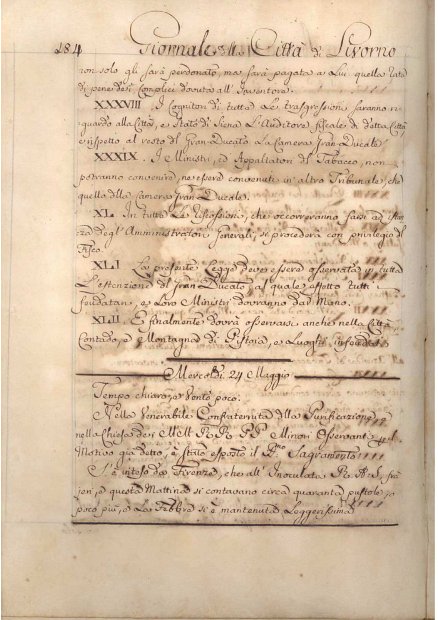 184 Giornale di Città di Livorno
non solo gli sarà perdonato, ma sarà pagata a Lui quella rata
di pene de Complici dovuta all' Inventore.
XXXVIII I Cognitori di tutte Le trasgressioni saranno ri-
guardo alla Città, e Stato di Siena L'Auditore fiscale di detta Città
e rispetto al resto del Gran Ducato La Camera Gran Ducale
XXXIX. I Ministri, ed Appaltatori del Tabacco, non
potranno convenire, ne essere convenuti in altro Tribunale, che
quella della Camera Gran Ducale.
XL. In tutte Le Riscossioni, che occorreranno farsi ad istan-
za degl' Amministratori Generali, si procederà con privilegio di
Fisco
XLI La presente Legge dever essere osservata in tutta
L'estenzione del Gran Ducato al quale effetto tutti i
feudatari, e Loro Ministri dovranno dar Mano.
XLII E finalmente dovrà osservarsi anche nella Città
Contado, e Montagna di Pistoia, e Luoghi
Mercoldì 24 Maggio
Tempo chiaro, e Vento poco.
Nella Venerabile Confraternita della Purificazione, e
nella Chiesa dei R R P P Minori Osservanti pel
Motivo già detto, è stato esposto il Sagramento
S'è inteso da Firenze, che all' Inoculata R. A. S.
a questa Mattina si contavano circa quaranta pustole, o
poco più, e La Febbre si è mantenuta Leggerissima